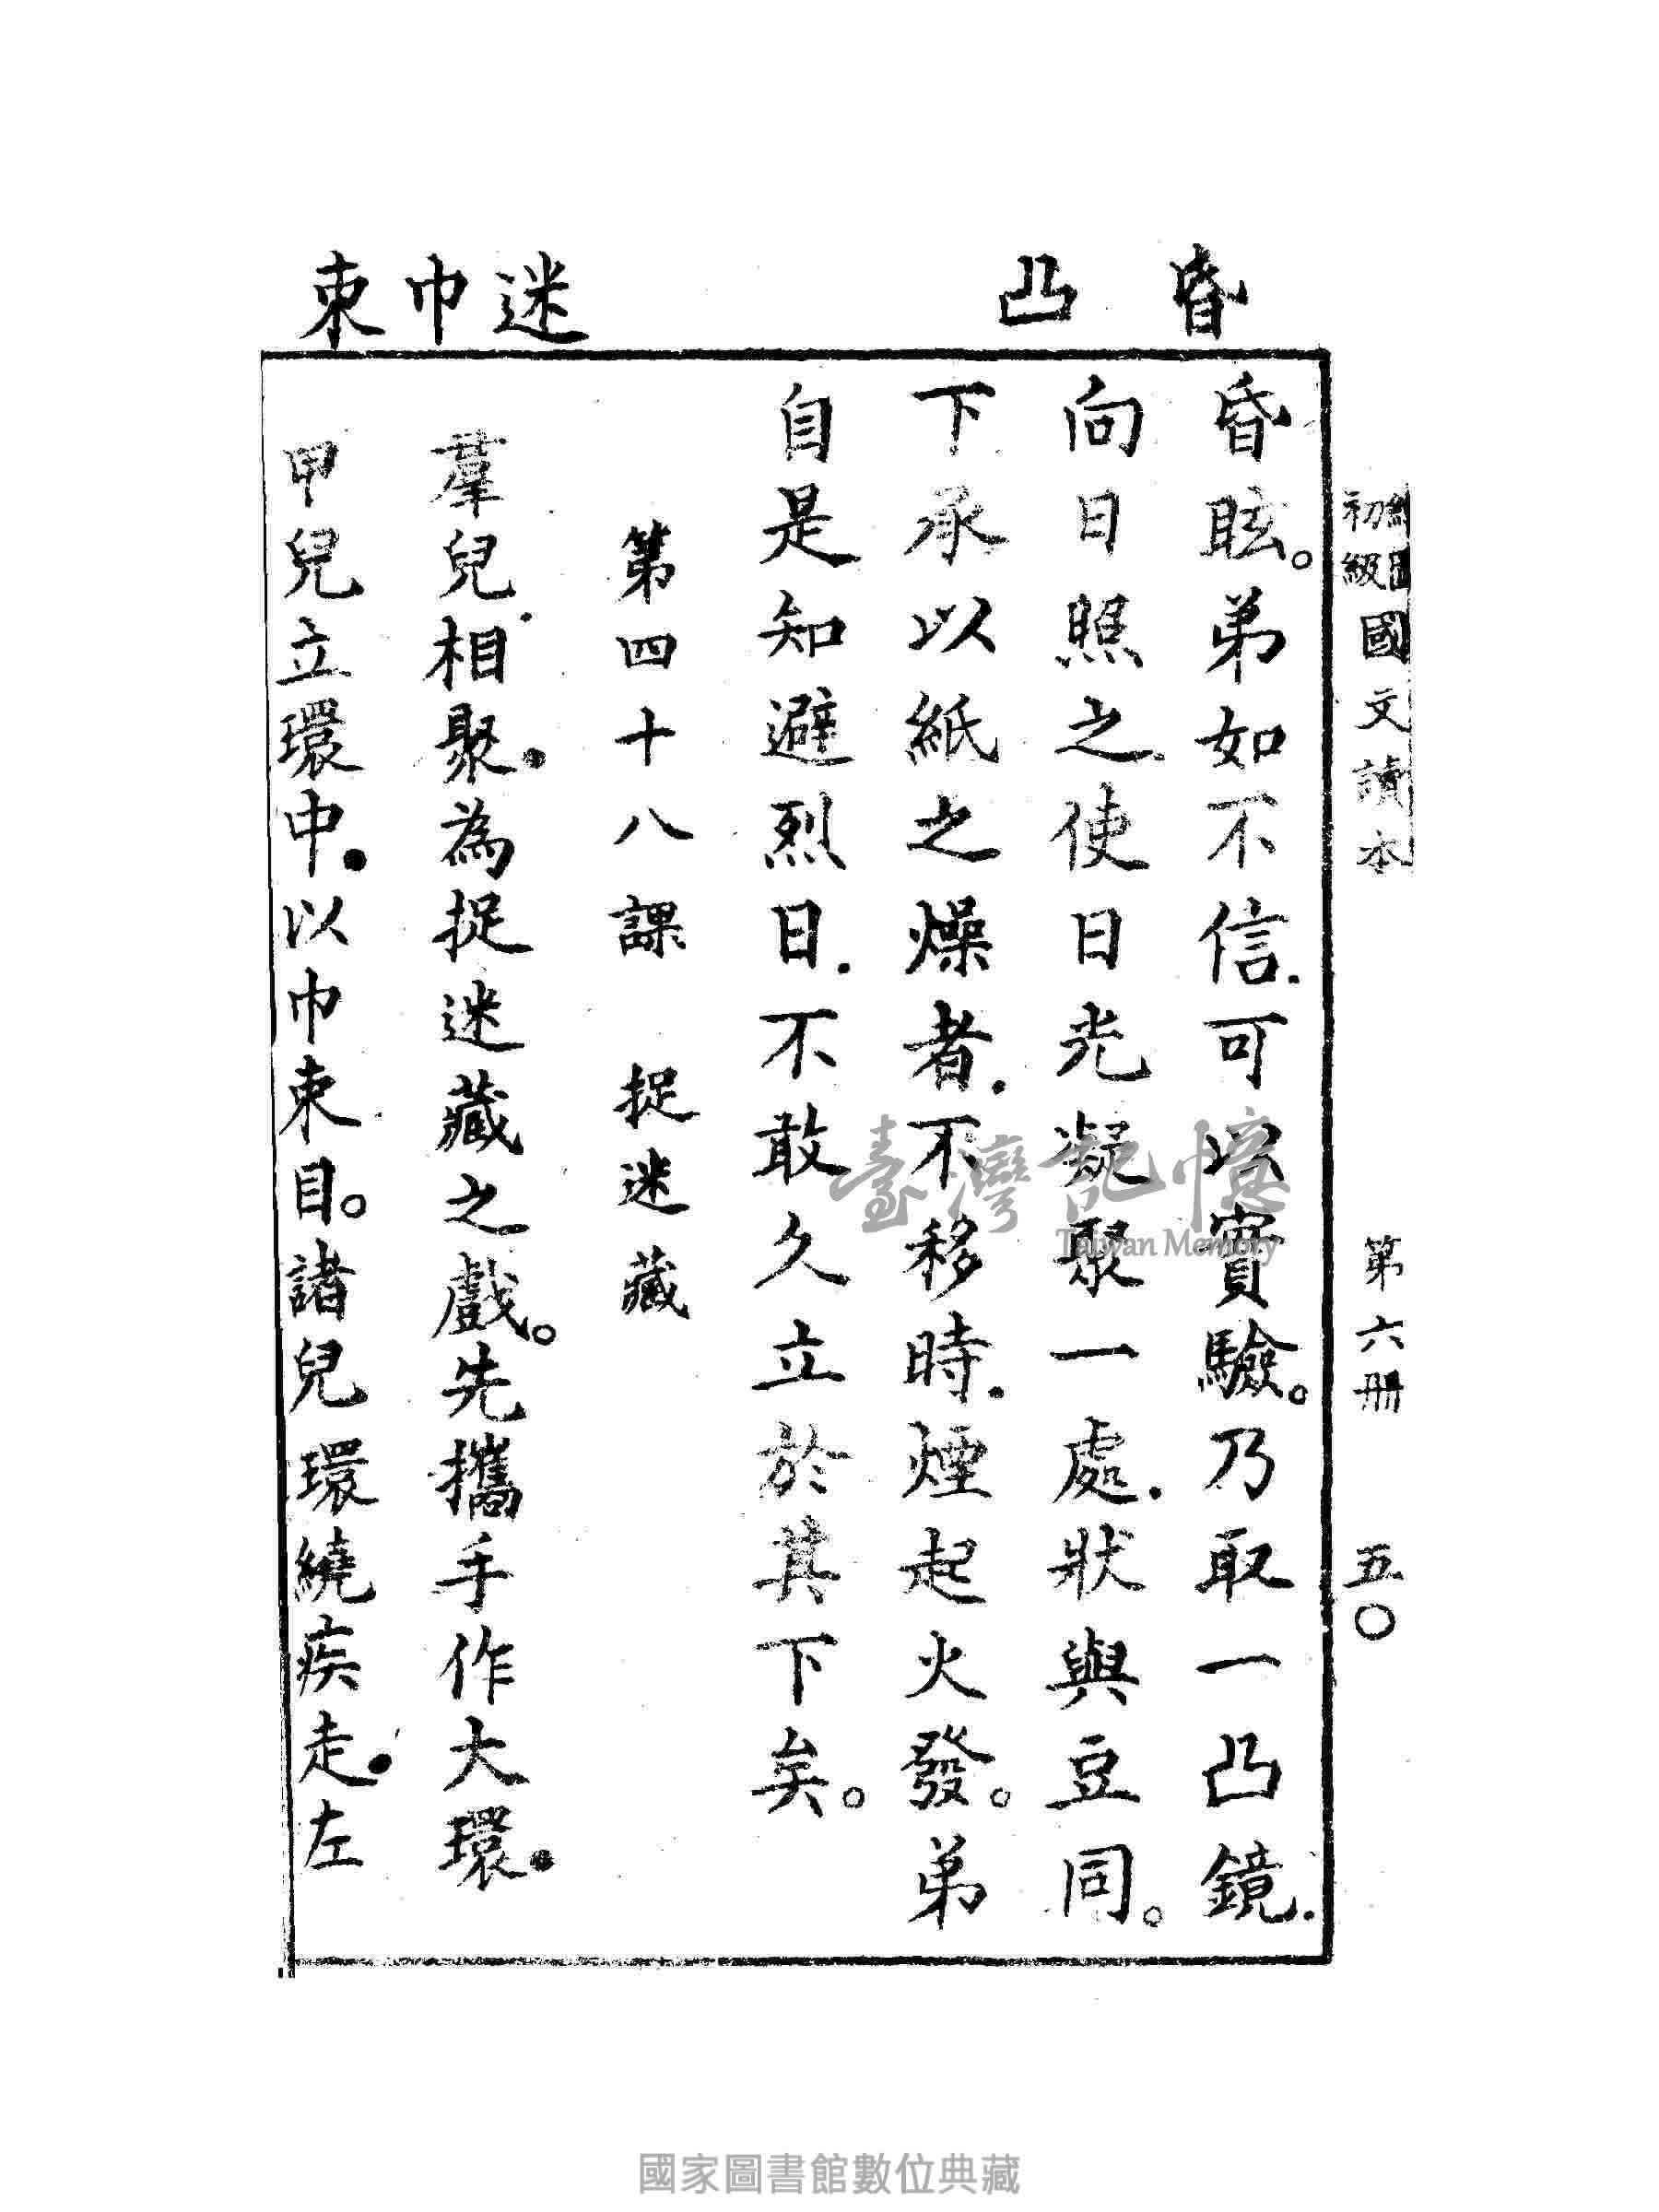 繪圖初級國文讀本 第六册 五〇
昏 凸 迷 巾 束
昏眩。弟如不信.可以實驗。乃取一凸鏡.
向日照之.使日光凝聚一處.狀與豆同。
下承以紙之燥者.不移時.煙起火發。弟
自是知避烈日.不敢久立於其下矣。
第四十八課 捉迷藏
羣兒相聚.為捉迷藏之戲。先攜手作大環.
甲兒立環中.以巾束目。諸兒環繞疾走.左
臺灣記憶
Taiwan Memory
國家圖書館數位典藏